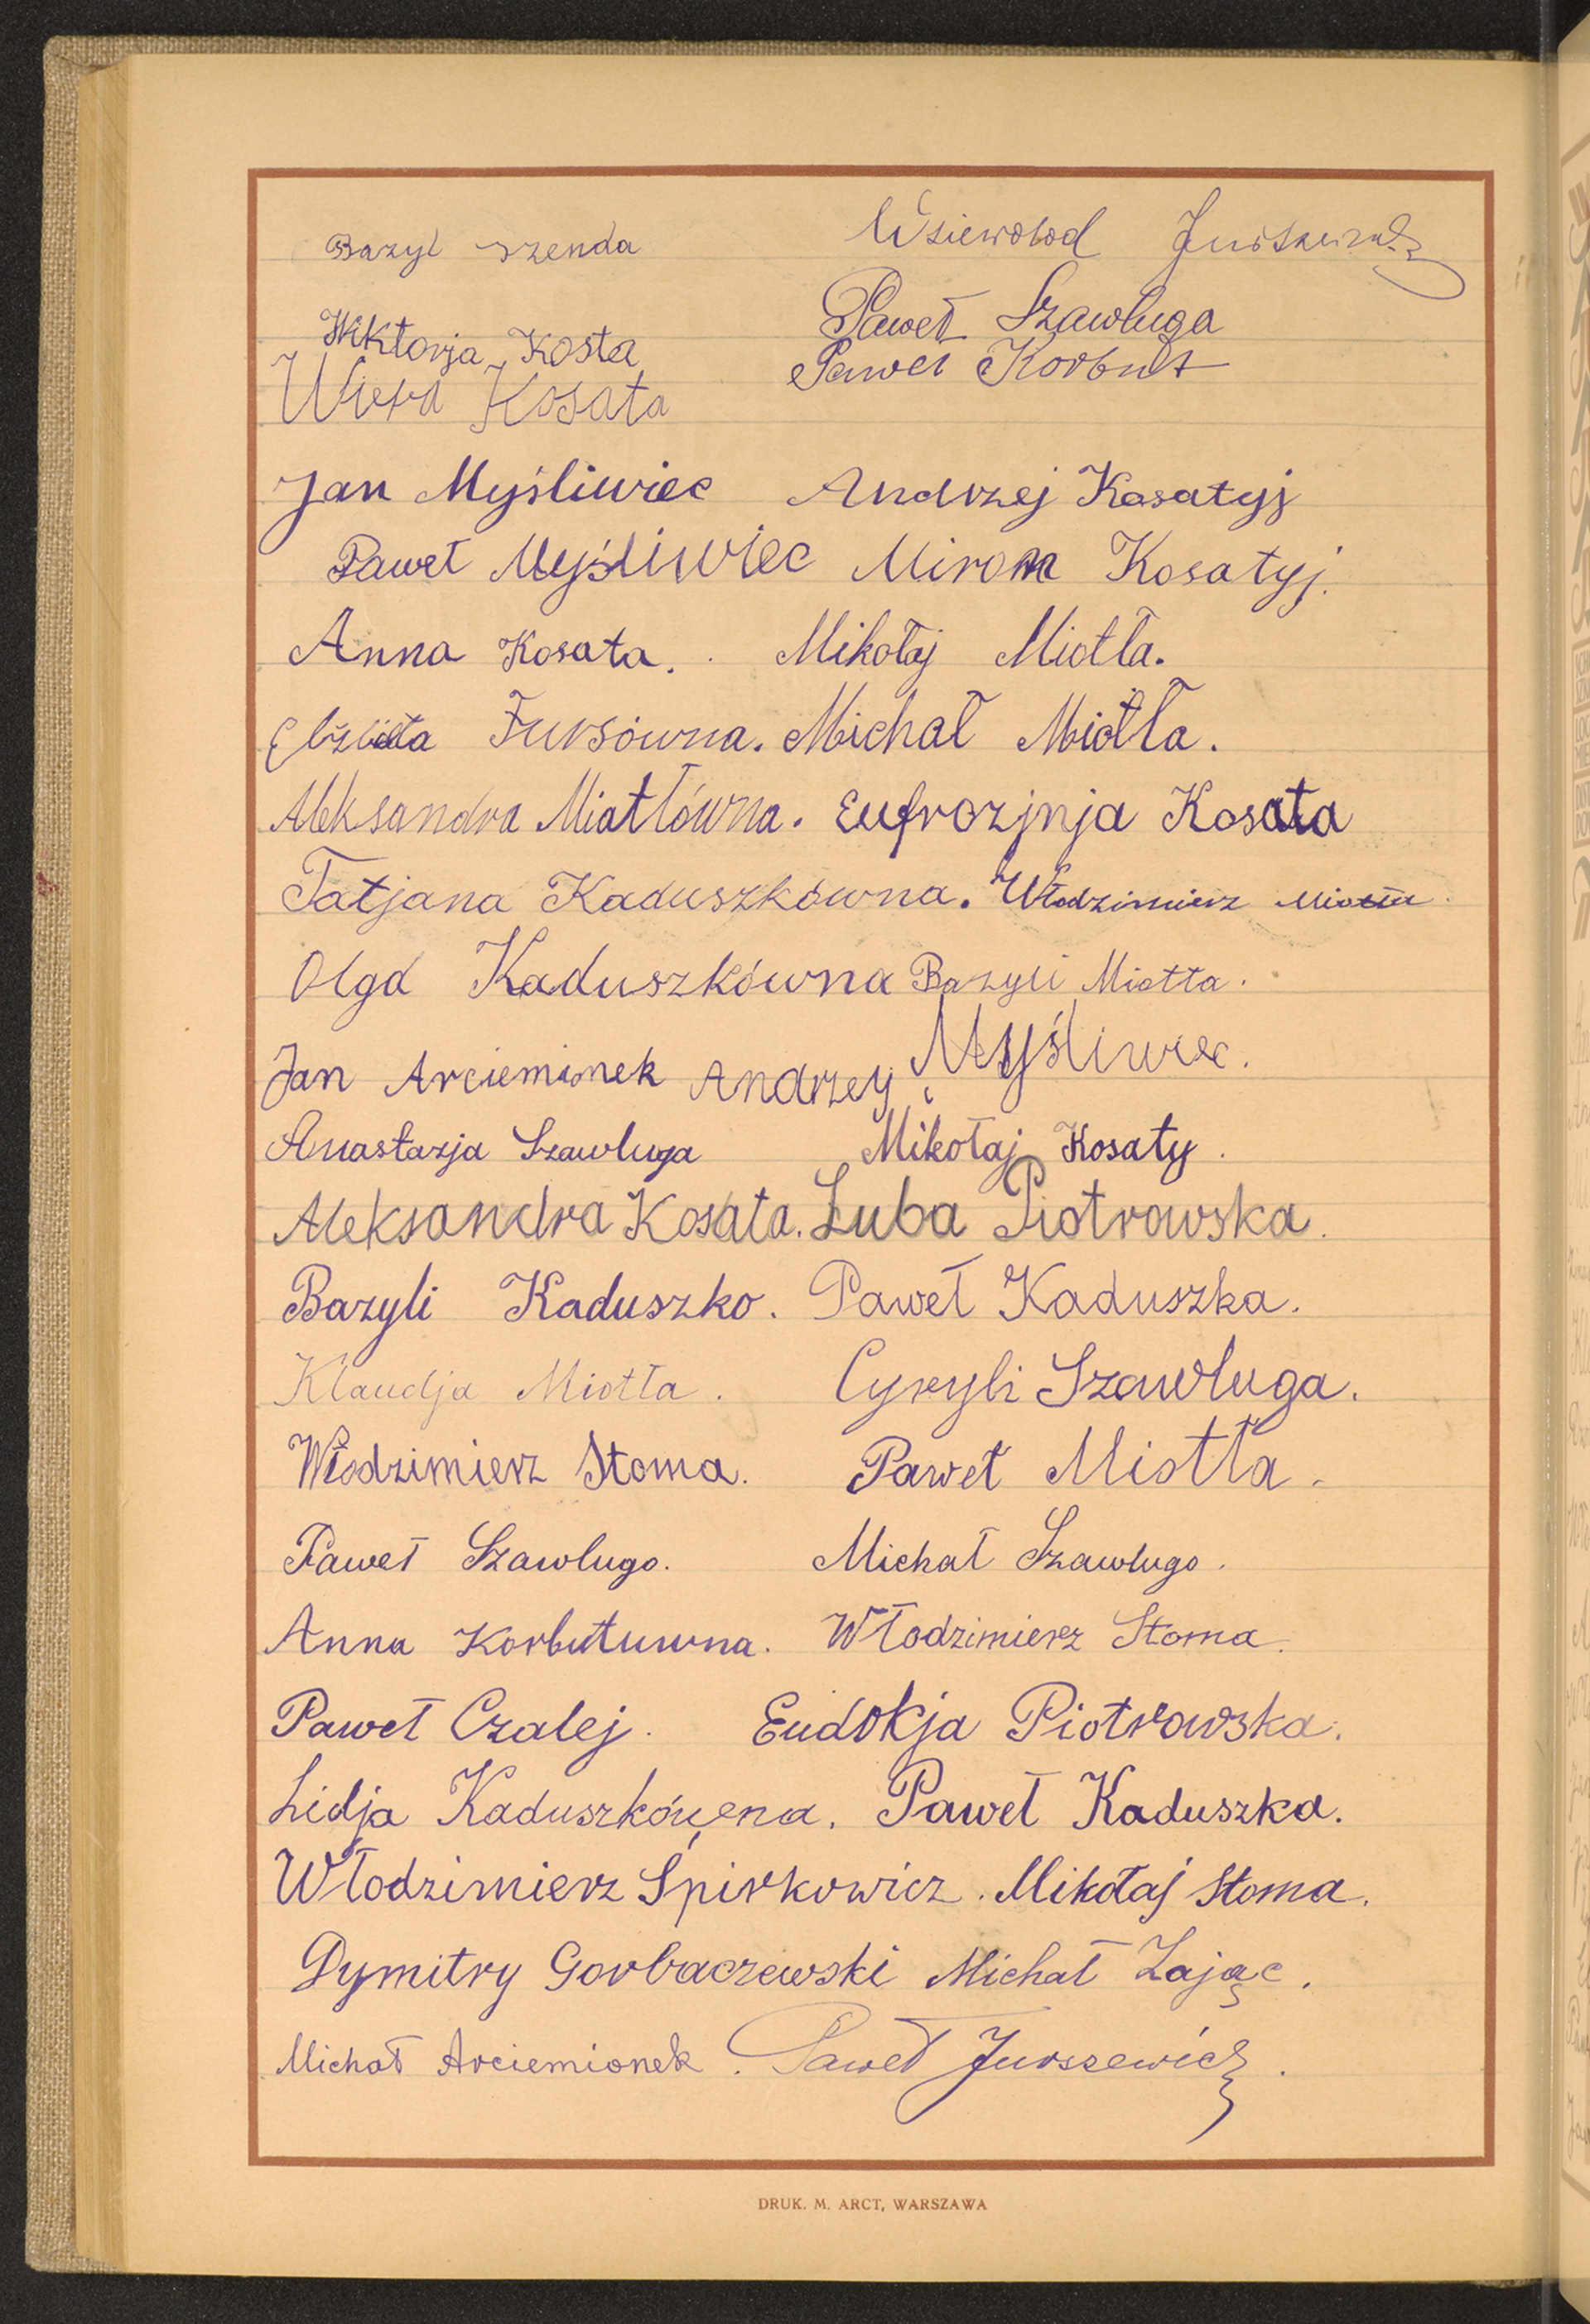 Bazyl Szenda Wsiewołod
Wiktorja Kosta Paweł Szawługa
Wiera Kosata Paweł Korbut
Jan Myśliwiec Andrzej Kosatyj
Paweł Myśliwiec Miron Kosatyj.
Anna Kosata. Mikołaj Miotła.
Elżbieta Fursówna. Michał Miotła.
Aleksandra Miatłówna. Eufrozjnja Kosata
Tatjana Kaduszkówna. Włodzimierz Miotła.
Olga Kaduszkówna Bazyli Miotła.
Jan Arciemionek Andrzey Myśliwiec.
Anastazja Szawluga Mikołaj Kosaty.
Aleksandra Kosata. Luba Piotrowska.
Bazyli Kaduszko. Paweł Kaduszka.
Klaudja Miotła. Cyryli Szawługa.
Włodzimierz Stoma. Paweł Miotła.
Paweł Szawlugo. Michał Szawlugo.
Anna Korbutuwna. Włodzimierz Stoma.
Paweł Czalej. Eudokja Piotrowska.
Lidja Kaduszkówena. Paweł Kaduszka.
Włodzimierz Śpirkowicz. Mikołaj Stoma.
Dymitry Gorbaczewski Michał Zając.
Michał Arciemionek. Paweł Jurszewicz.
DRUK. M. ARCT, WARSZAWA